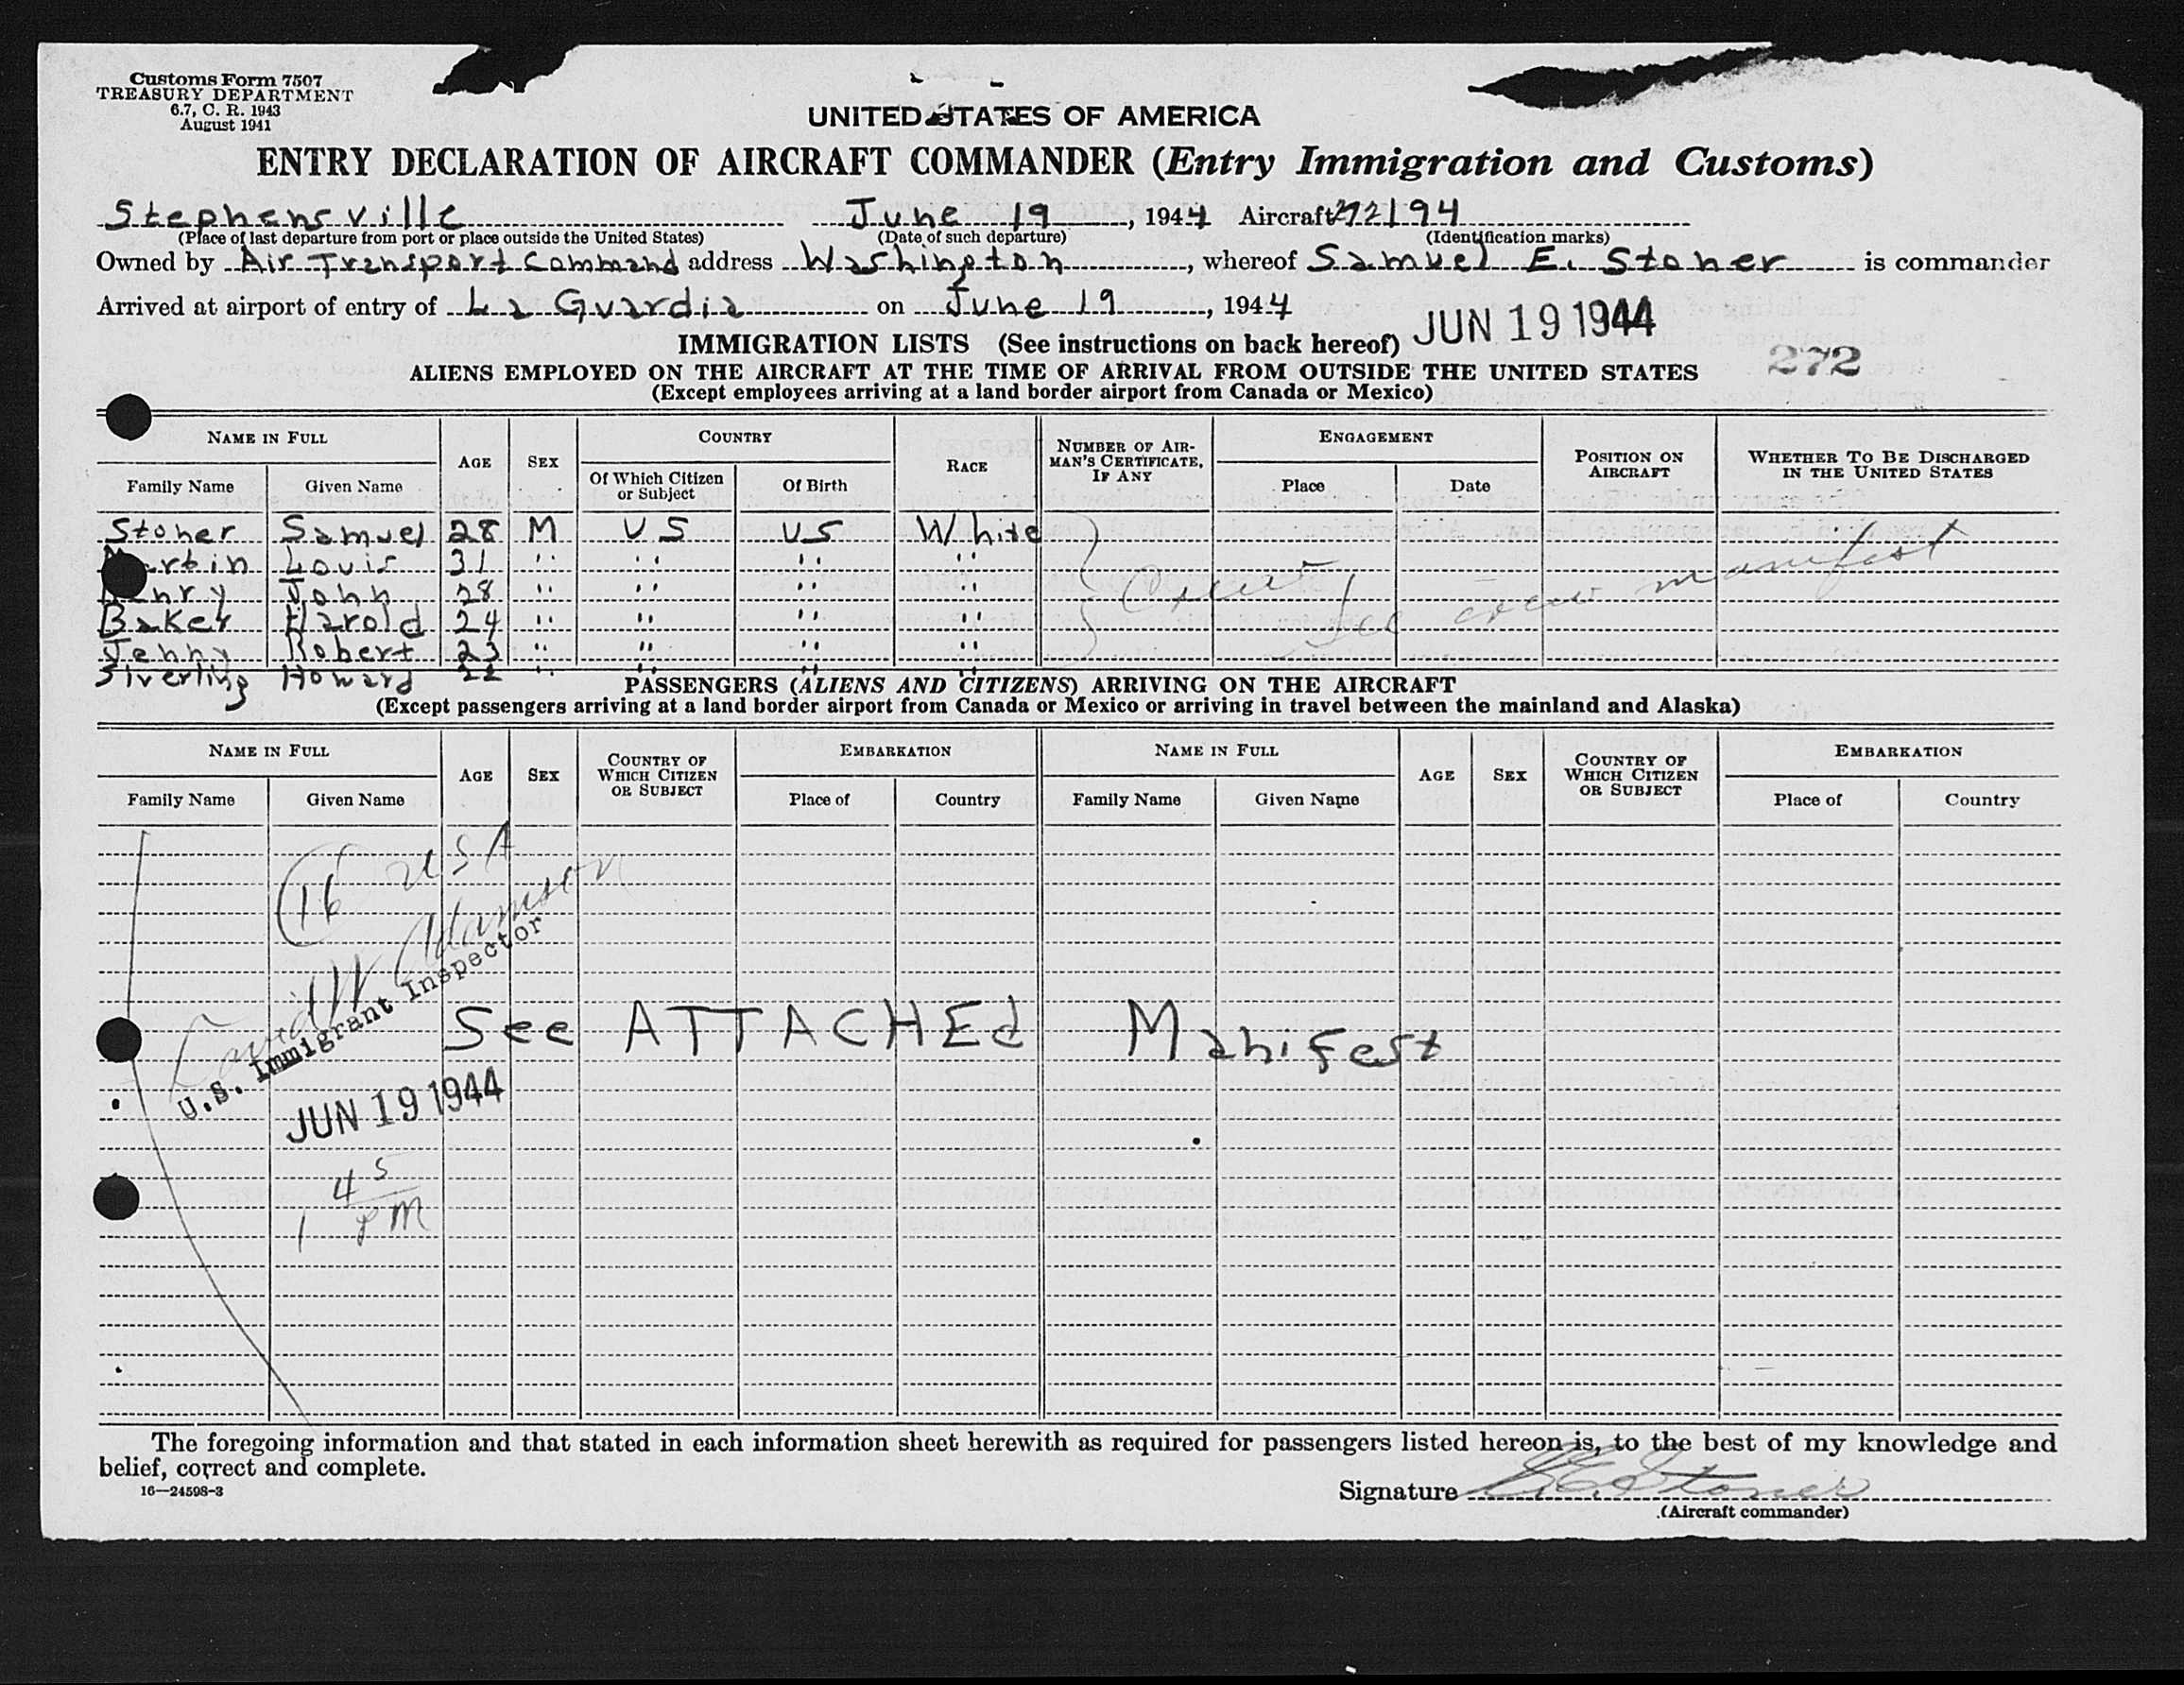 Customs Form 7507
TREASURY DEPARTMENT
6.7, C. R. 1943
August 1941
UNITED STATES OF AMERICA
ENTRY DECLARATION OF AIRCRAFT COMMANDER (Entry Immigration and Customs)
Stephensville June 19, 1944 Aircraft 272194
(Place of last departure from port or place outside the United States) (Date of such departure) (Identification marks)
Owned by Air Transport Command address Washington, whereof Samuel E. Stoner is commander
Arrived at airport of entry of La Guardia on June 19, 1944
JUN 19 1944
IMMIGRATION LISTS (See instructions on back hereof)
272
ALIENS EMPLOYED ON THE AIRCRAFT AT THE TIME OF ARRIVAL FROM OUTSIDE THE UNITED STATES
(Except employees arriving at a land border airport from Canada or Mexico)
NAME IN FULL AGE SEX COUNTRY RACE NUMBER OF AIRMAN'S CERTIFICATE, IF ANY ENGAGEMENT POSITION ON AIRCRAFT WHETHER TO BE DISCHARGED IN THE UNITED STATES
Family Name Given Name Of Which Citizen or Subject Of Birth Place Date
Stoner Samuel 28 M US US White
Martin Louis 31 " " " "
Henry John 28 " " " "
Baker Harold 24 " " " "
Jenny Robert 23 " " " "
Siverling Howard 22 " " " "
Crew
See crew manifest
PASSENGERS (ALIENS AND CITIZENS) ARRIVING ON THE AIRCRAFT
(Except passengers arriving at a land border airport from Canada or Mexico or arriving in travel between the mainland and Alaska)
NAME IN FULL AGE SEX COUNTRY OF WHICH CITIZEN OR SUBJECT EMBARKATION NAME IN FULL AGE SEX COUNTRY OF WHICH CITIZEN OR SUBJECT EMBARKATION
Family Name Given Name Place of Country Family Name Given Name Place of Country
16 USA
David W Adamson
U.S. Immigrant Inspector
See ATTACHEd Manifest
JUN 19 1944
1 45 PM
The foregoing information and that stated in each information sheet herewith as required for passengers listed hereon is, to the best of my knowledge and
belief, correct and complete.
16—24598-3
Signature S. E. Stoner
(Aircraft commander)